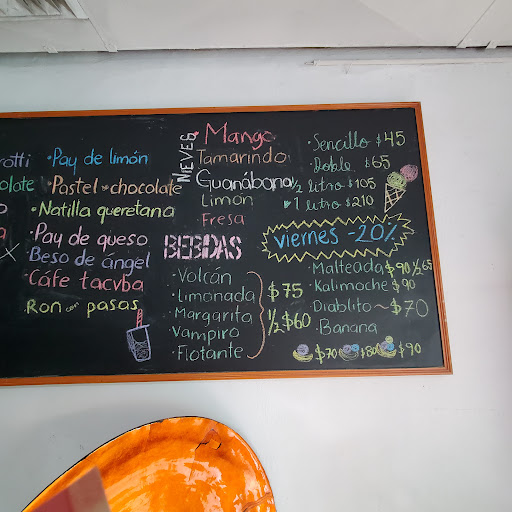 rotti
olate
· Pay de limón
· Pastel · chocolate
· Natilla queretana
· Pay de queso
· Beso de ángel
· Cáfe tacvba
· Ron con pasas
NIEVES
· Mango
Tamarindo
Guanábana
Limón
Fresa
· Sencillo $45
· Doble $65
1/2 litro $105
· 1 litro $210
viernes -20%
BEBIDAS
· Volcán
· Limonada
· Margarita
· Vampiro
· Flotante
$75
1/2 $60
· Malteada $90 1/2 65
· Kalimoche $90
· Diablito ~ $70
· Banana
$70 $80 $90